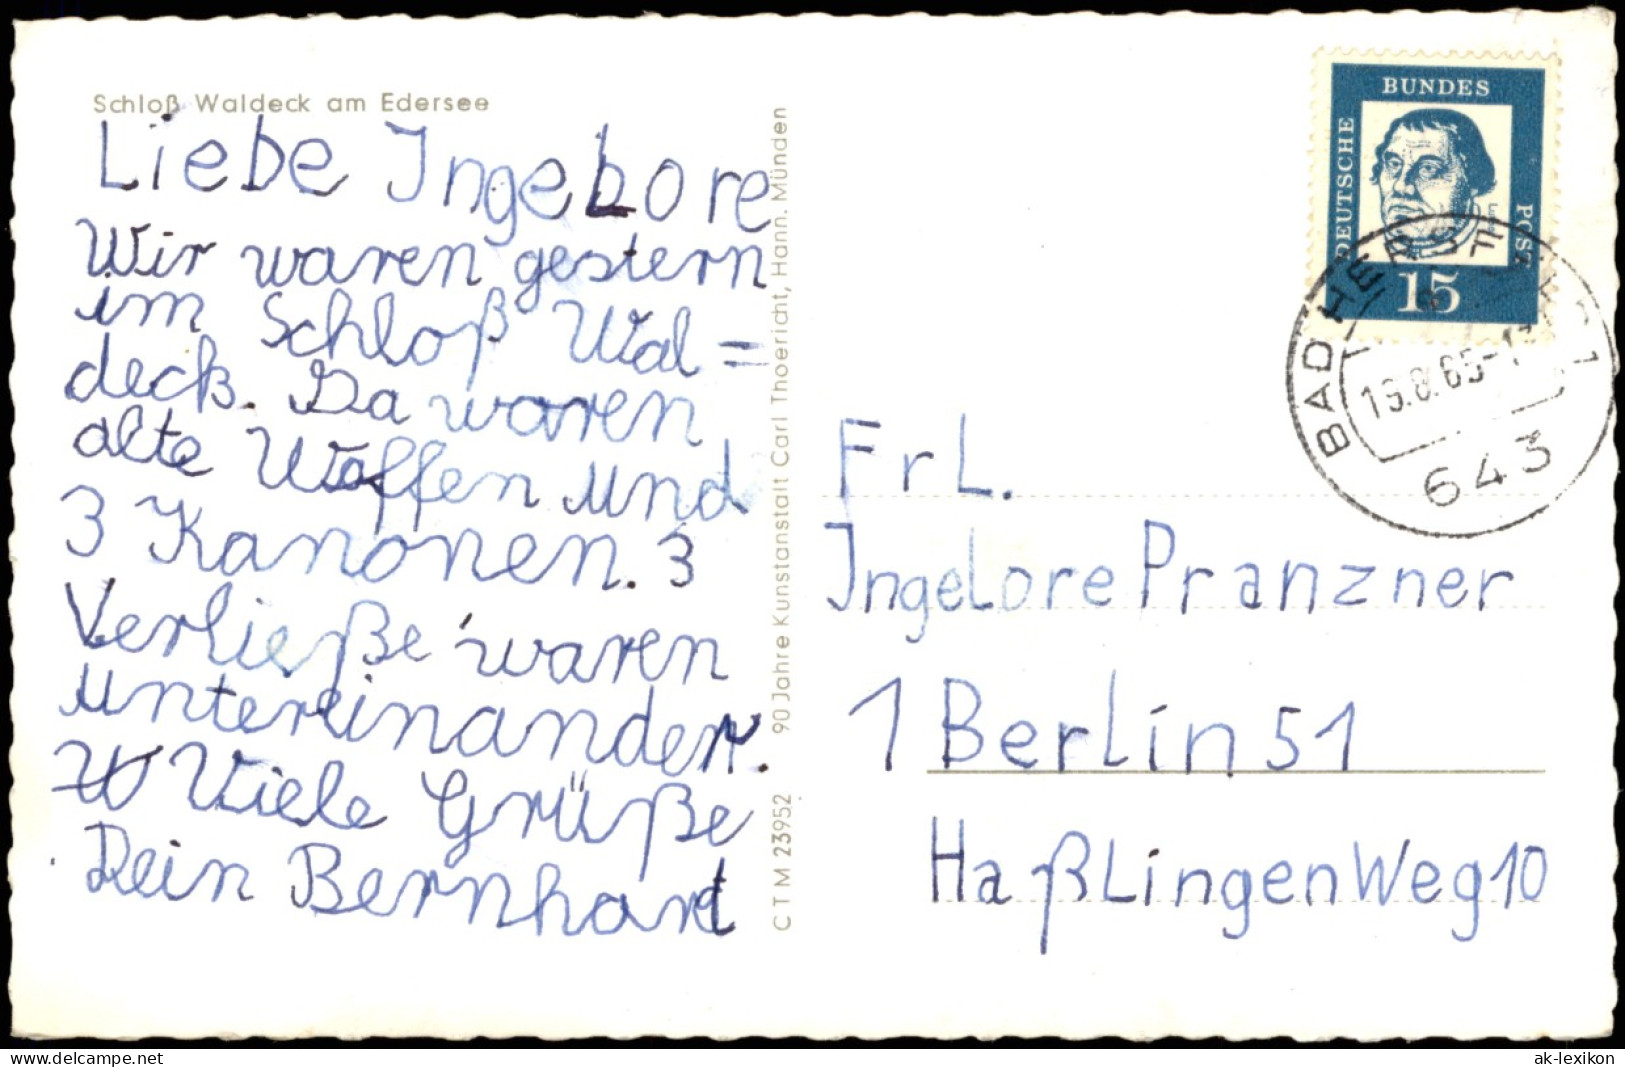 Schloß Waldeck am Edersee
Liebe Ingelore
Wir waren gestern
im Schloß Wal=
deck. Da waren
alte Waffen und
3 Kanonen. 3
Verließe waren
untereinander.
W Viele Grüße
Dein Bernhard
CTM 23952 90 Jahre Kunstanstalt Carl Thoericht, Hann. Münden
DEUTSCHE
BUNDES
POST
15
BAD HERSFELD
19.8.65-1
643
FrL.
Ingelore Pranzner
1 Berlin 51
Haßlingen Weg 10
www.delcampe.net
ak-lexikon